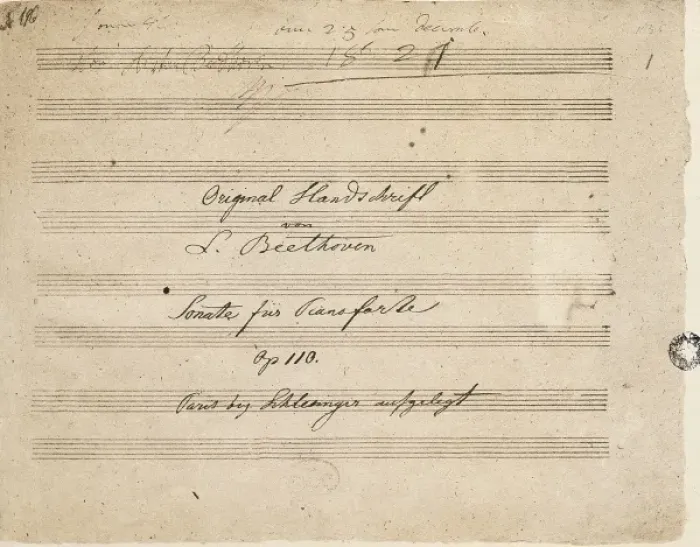 am 25 ten Decemb.
1821
1
Original Handschrift
von
L. Beethoven
Sonate für Pianoforte
Op 110.
Paris bey Schlesinger aufgelegt